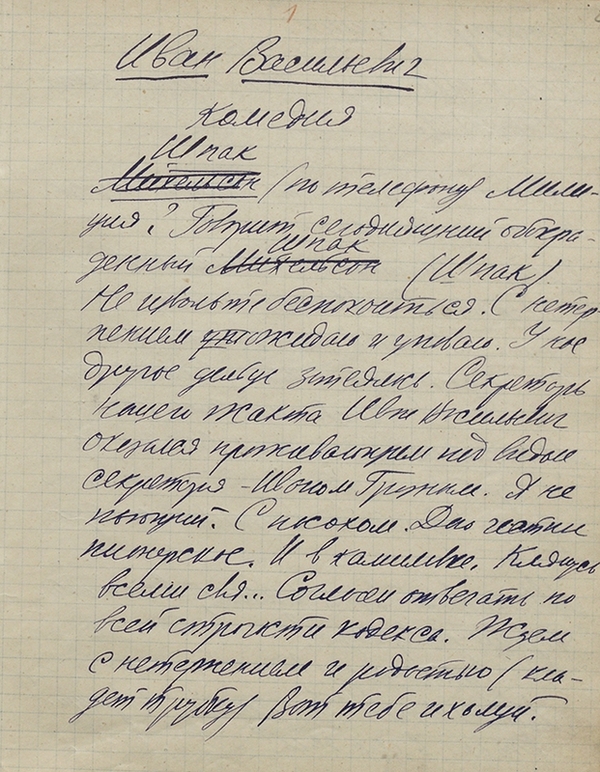 1
Иван Васильевич
Комедия
Шпак
Михельсон (по телефону) Мили-
ция? Говорит сегодняшний обкра-
Шпак
денный Михельсон (Шпак)
Не извольте беспокоиться. С нетер-
пением ожидаю и уповаю. У нас
другое дельце затеялось. Секретарь
нашего жакта Иван Васильевич
оказался проживающим под видом
секретаря - Иваном Грозным. Я не
пьющий. С посохом. Дно
питерское. И в камилавке. Клянусь
всеми свя... Согласен отвечать по
всей строгости кодекса. Ждем
с нетерпением и радостью (кла-
дет трубку) Вот тебе и холуй.